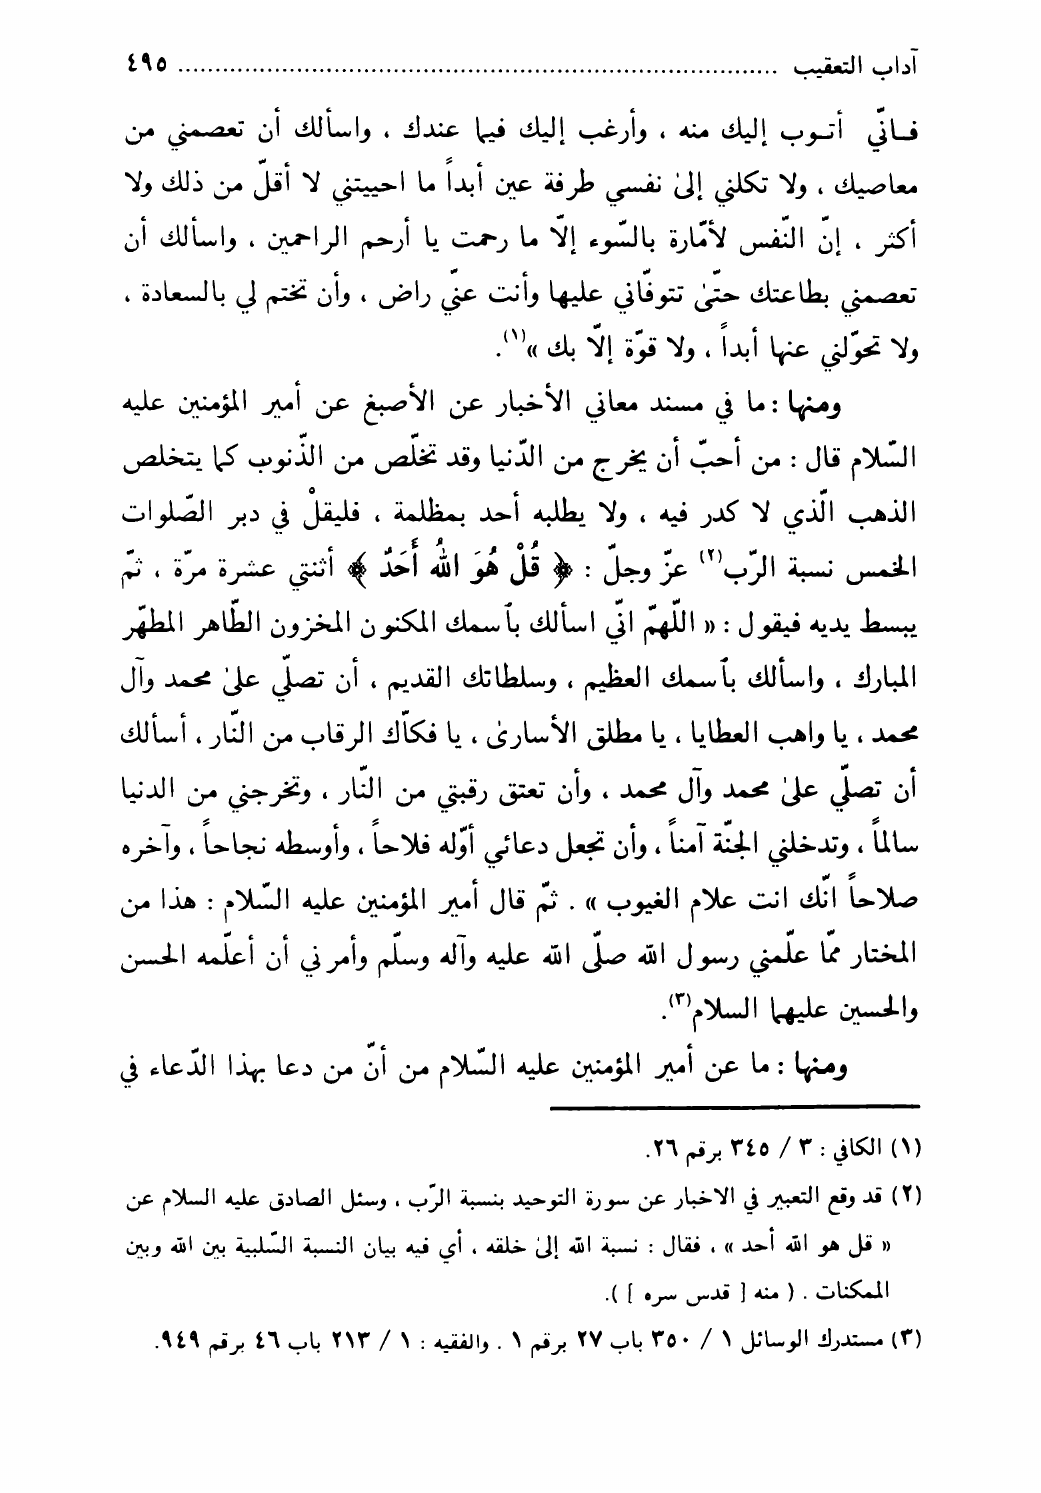 آداب التعقيب ................................................................................ ٤٩٥
فـانّي أتـوب إليك منه ، وأرغب إليك فيما عندك ، واسألك أن تعصمني من
معاصيك ، ولا تكلني إلىٰ نفسي طرفة عين أبداً ما احييتني لا أقلّ من ذلك ولا
أكثر ، إنّ النّفس لأمّارة بالسّوء إلّا ما رحمت يا أرحم الراحمين ، واسألك أن
تعصمني بطاعتك حتّىٰ تتوفّاني عليها وأنت عنّي راض ، وأن تختم لي بالسعادة ،
ولا تحوّلني عنها أبداً ، ولا قوّة إلّا بك »(١).
ومنها : ما في مسند معاني الأخبار عن الأصبغ عن أمير المؤمنين عليه
السّلام قال : من أحبّ أن يخرج من الدّنيا وقد تخلّص من الذّنوب كما يتخلص
الذهب الّذي لا كدر فيه ، ولا يطلبه أحد بمظلمة ، فليقلْ في دبر الصّلوات
الخمس نسبة الرّب(٢) عزّ وجلّ : ﴿ قُلْ هُوَ اللهُ أَحَدٌ ﴾ أثنتي عشرة مرّة ، ثمّ
يبسط يديه فيقول : « اللّهمّ انّي اسألك بأسمك المكنون المخزون الطّاهر المطهّر
المبارك ، واسألك بأسمك العظيم ، وسلطانك القديم ، أن تصلّي علىٰ محمد وآل
محمد ، يا واهب العطايا ، يا مطلق الأسارىٰ ، يا فكاّك الرقاب من النّار ، أسألك
أن تصلّي علىٰ محمد وآل محمد ، وأن تعتق رقبتي من النّار ، وتخرجني من الدنيا
سالماً ، وتدخلني الجنّة آمناً ، وأن تجعل دعائي أوّله فلاحاً ، وأوسطه نجاحاً ، وآخره
صلاحاً انّك انت علام الغيوب » . ثمّ قال أمير المؤمنين عليه السّلام : هذا من
المختار ممّا علّمني رسول الله صلّى الله عليه وآله وسلّم وأمرني أن أعلّمه الحسن
والحسين عليهما السلام(٣).
ومنها : ما عن أمير المؤمنين عليه السّلام من أنّ من دعا بهذا الدّعاء في
(١) الكافي : ٣ / ٣٤٥ برقم ٢٦.
(٢) قد وقع التعبير في الاخبار عن سورة التوحيد بنسبة الرّب ، وسئل الصادق عليه السلام عن
« قل هو الله أحد » ، فقال : نسبة الله إلىٰ خلقه ، أي فيه بيان النسبة السّلبية بين الله وبين
الممكنات . ( منه [ قدس سره ] ).
(٣) مستدرك الوسائل ١ / ٣٥٠ باب ٢٧ برقم ١ . والفقيه : ١ / ٢١٣ باب ٤٦ برقم ٩٤٩.